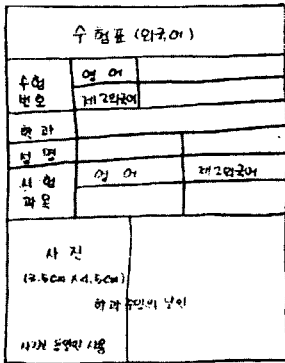 수험표 (외국어)
수험 번호
영어
제2외국어
학과
성명
시험 과목
영어
제2외국어
사진
(3.5cm x 4.5cm)
학과 주임의 날인